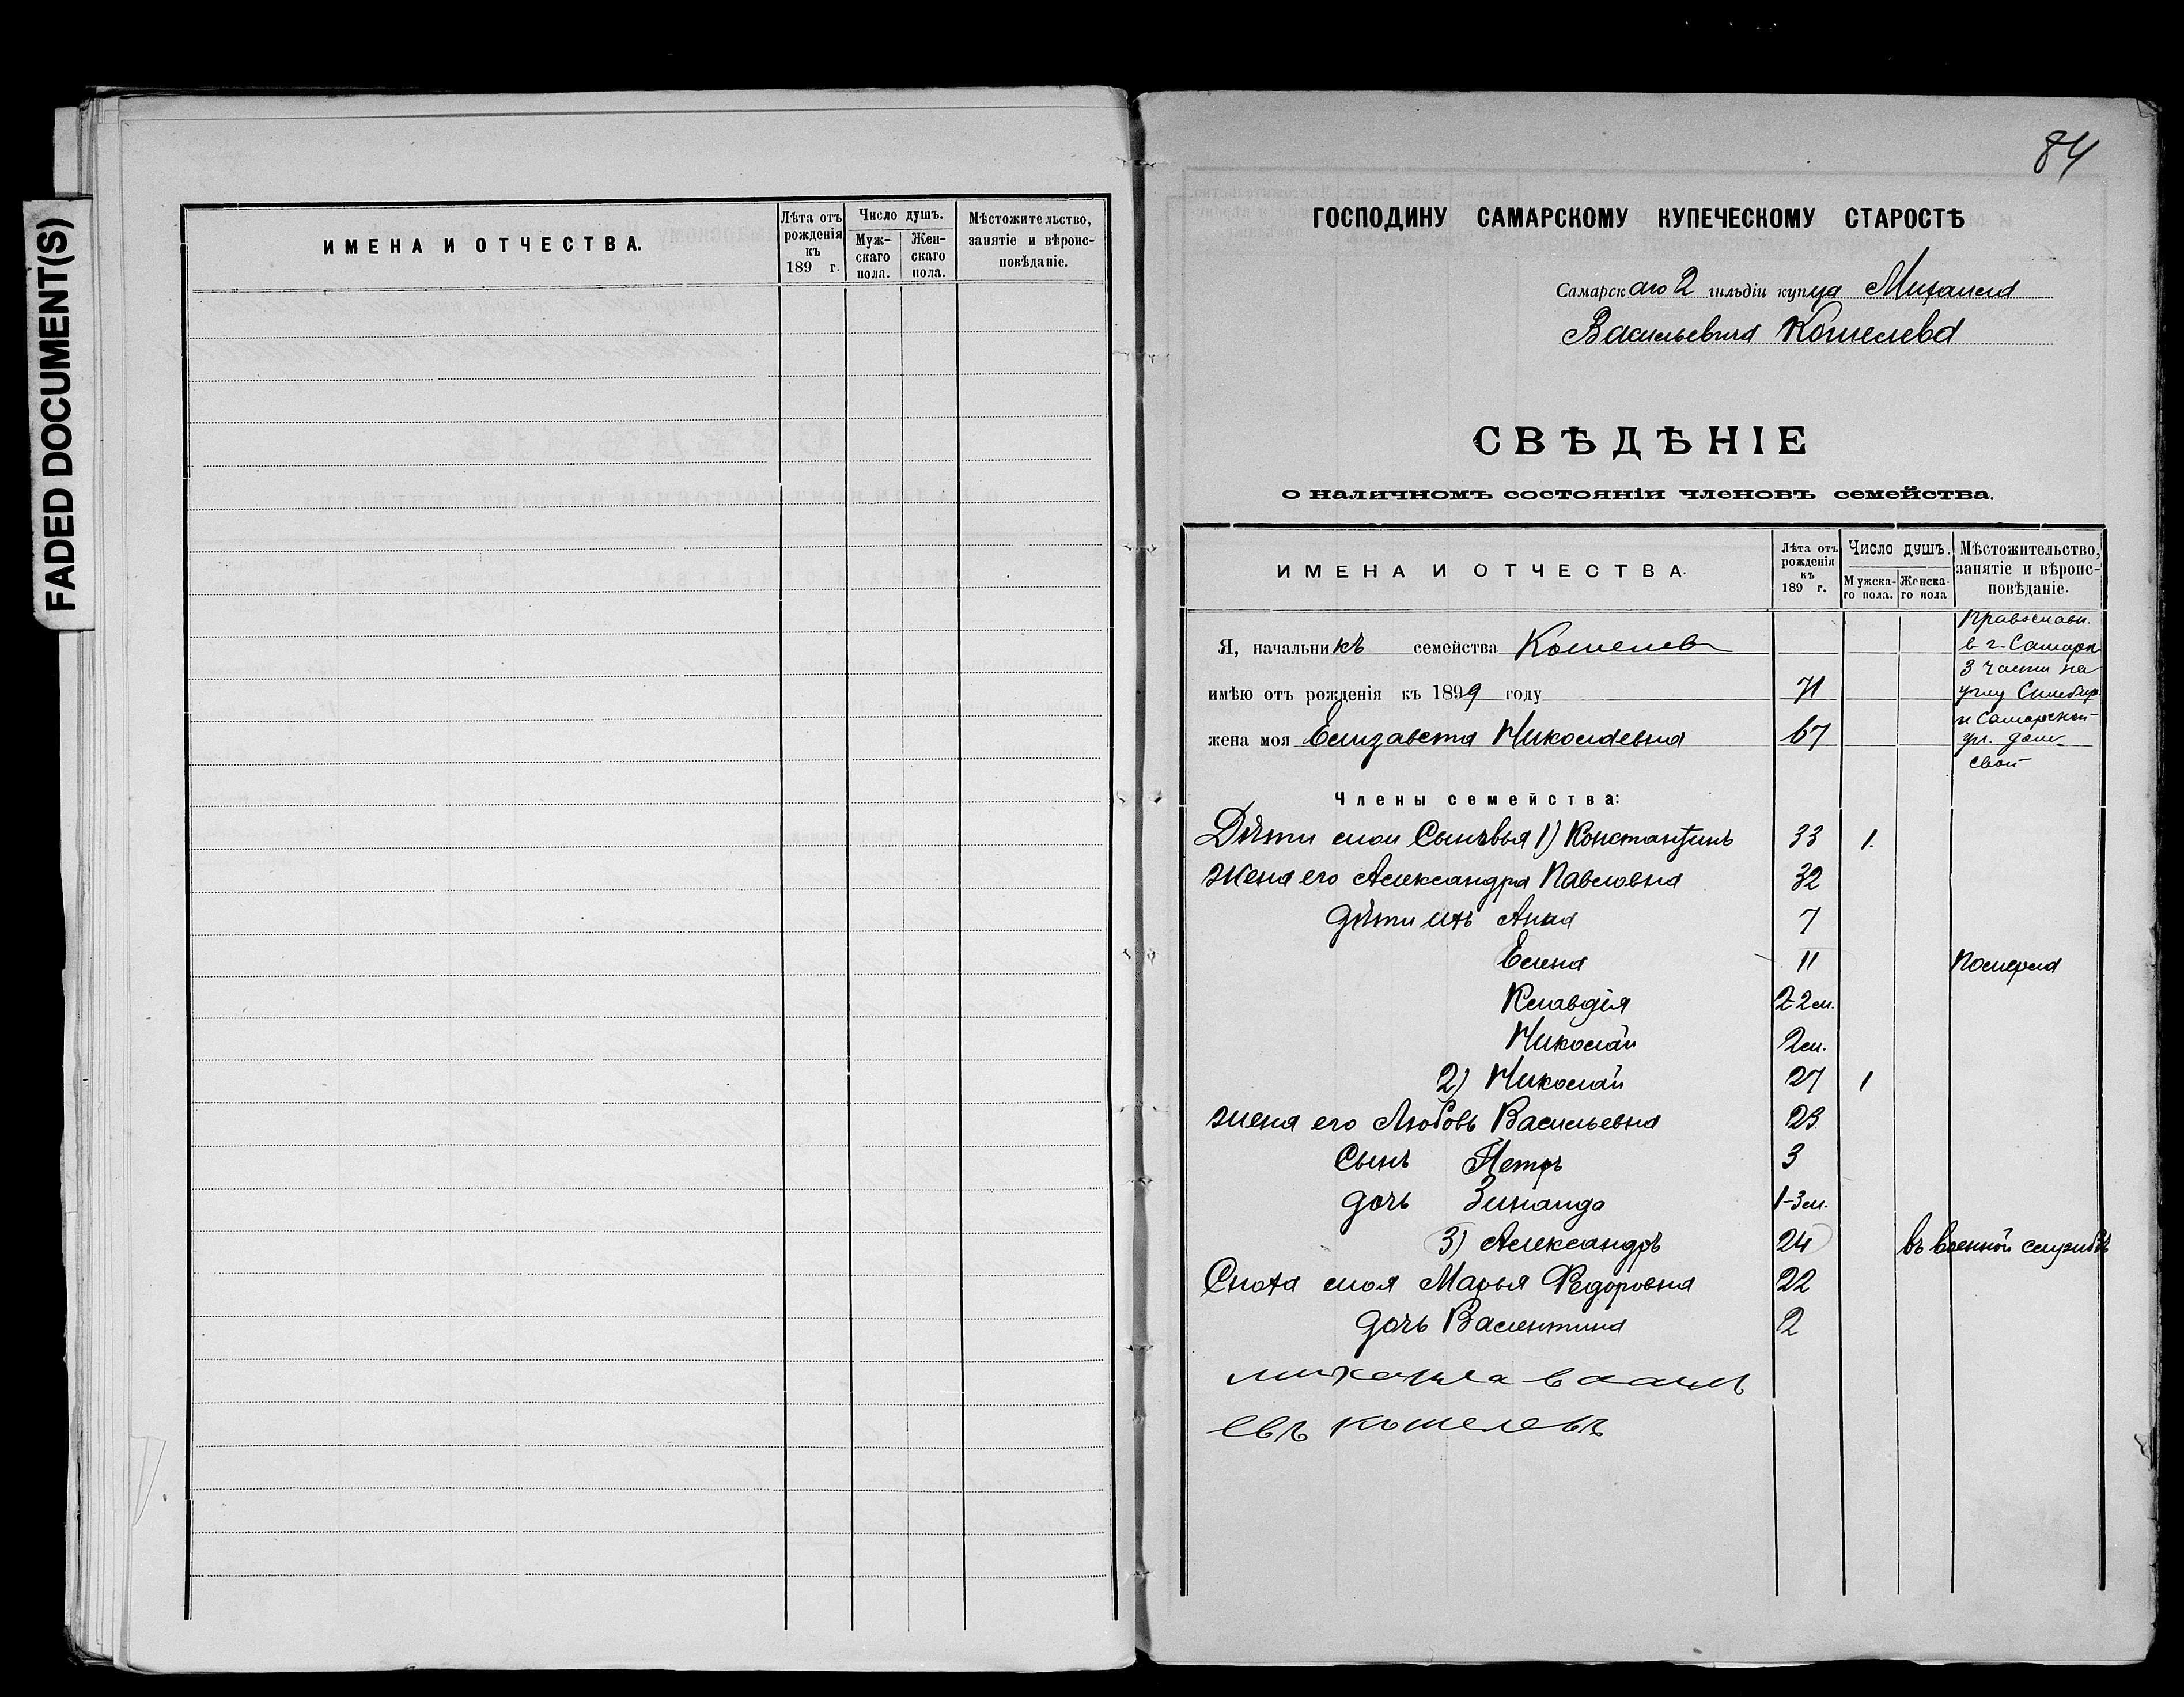 FADED DOCUMENT(S)
ИМЕНА И ОТЧЕСТВА.
Лѣта отъ рожденія къ 189 г.
Число душъ.
Муж-скаго пола.
Жен-скаго пола.
Мѣстожительство, занятіе и вѣроис-повѣданіе.
84
ГОСПОДИНУ САМАРСКОМУ КУПЕЧЕСКОМУ СТАРОСТѢ
Самарскаго 2 гильдіи купца Михаила
Васильевича Кошелева
СВѢДѢНІЕ
о наличномъ состояніи членовъ семейства.
ИМЕНА И ОТЧЕСТВА.
Лѣта отъ рожденія къ 189 г.
Число душъ.
Мужска-го пола.
Женска-го пола
Мѣстожительство, занятіе и вѣроис-повѣданіе.
Православн.
Я, начальникъ семейства Кошелев
в г. Самарѣ
3 части на
имѣю отъ рожденія къ 1899 году 71
углу Симбир.
и Самарской
жена моя Елизавета Николаевна 67
ул. дом
свой
Члены семейства:
Дѣти мои Сыновья 1) Константинъ 33 1.
Жена его Александра Павловна 32
дѣти ихъ Анна 7
Елена 11 Померла
Клавдія 2-2 м.
Николай 2 м.
2) Николай 27 1
жена его Любовь Васильевна 23
Сынъ Петръ 3
дочь Зинаида 1-3 м.
3) Александръ 24 въ военной службѣ
Сноха моя Марья Федоровна 22
дочь Валентина 2
михаила васил
евъ кошелевъ